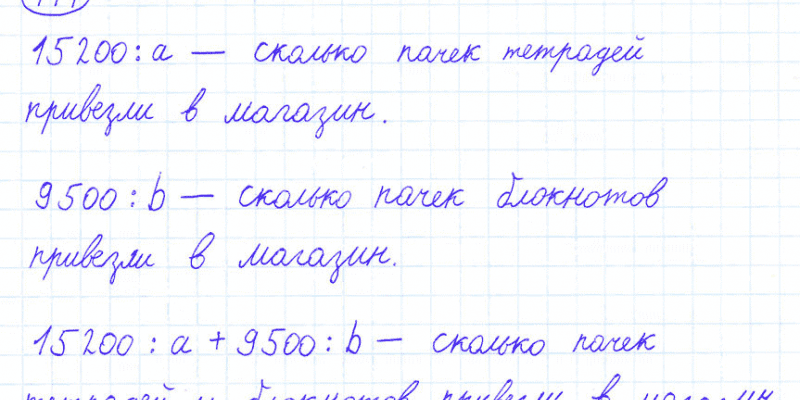 15200 : a — сколько пачек тетрадей
привезли в магазин.
9500 : b — сколько пачек блокнотов
привезли в магазин.
15200 : a + 9500 : b — сколько пачек
тетрадей и блокнотов привезли в магазин